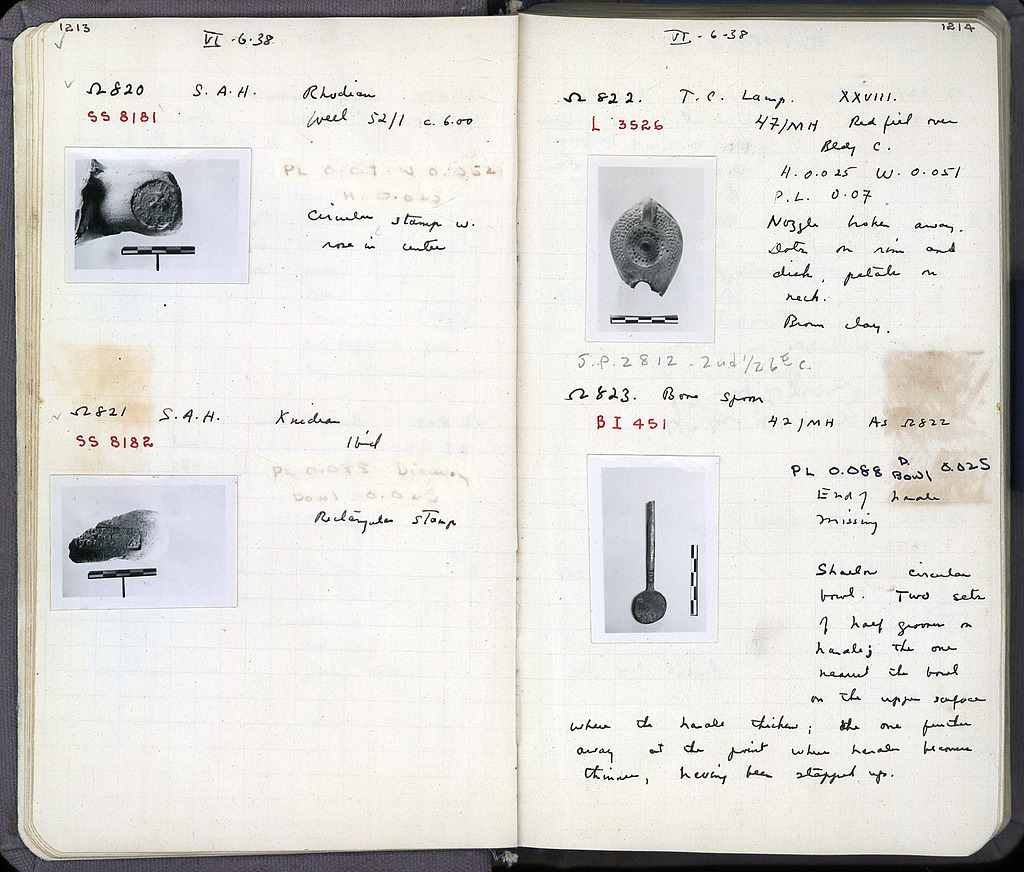 1213
VI-6-38
Ω820 S.A.H. Rhodian
SS 8181
Well 52/1 c. 6.00
PL 0.07 W 0.052
H. 0.025
Circular stamp w.
rose in center
Ω821 S.A.H. Knidian
SS 8182
Ibid
PL 0.088
bowl 0.025
Rectangular stamp
1214
VI-6-38
Ω822. T.C. Lamp. XXVIII.
L 3526
47/MH Red fill over
Bldg C.
H. 0.025 W. 0.051
P.L. 0.07
Nozzle broken away.
Dots on rim and
disk, petals on
neck.
Brown clay.
J.P. 2812 - 2nd 1/2 6th c.
Ω823. Bone spoon
B I 451
42/MH As Ω822
PL 0.088 D. Bowl 0.025
End of handle
missing
Shallow circular
bowl. Two sets
of half grooves on
handle; the one
nearest the bowl
on the upper surface
where the handle thickens; the one further
away at the point where handle becomes
thinner, having been stepped up.